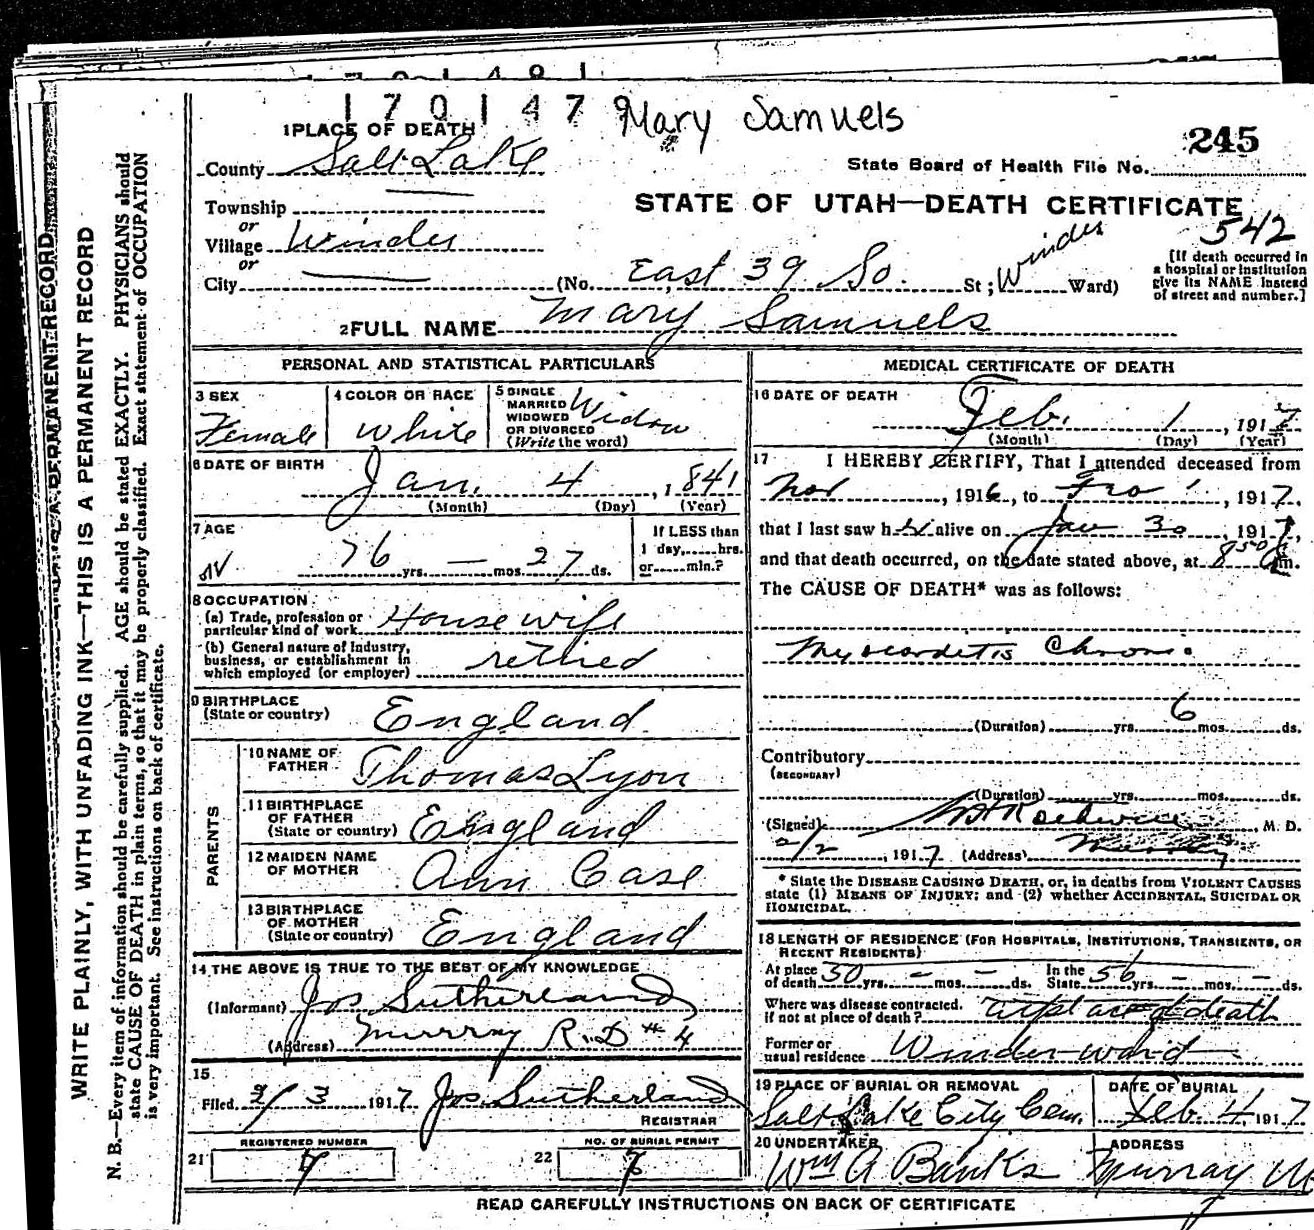 1 7 0 1 4 8 1
1 7 0 1 4 7 9 Mary Samuels
245
1 PLACE OF DEATH
County Salt Lake
State Board of Health File No.
Township
or
Village Winder
or
City
STATE OF UTAH—DEATH CERTIFICATE
542
(No. East 39 So. St; Winder Ward)
[If death occurred in
a hospital or institution
give its NAME instead
of street and number.]
2 FULL NAME Mary Samuels
PERSONAL AND STATISTICAL PARTICULARS
3 SEX
Female
4 COLOR OR RACE
White
5 SINGLE
MARRIED
WIDOWED
OR DIVORCED
(Write the word)
Widow
6 DATE OF BIRTH
Jan. 4, 1841
(Month) (Day) (Year)
7 AGE
76 yrs. — mos. 27 ds.
If LESS than
1 day,......hrs.
or......min.?
8 OCCUPATION
(a) Trade, profession or
particular kind of work House wife
(b) General nature of Industry,
business, or establishment in
which employed (or employer) retired
9 BIRTHPLACE
(State or country) England
PARENTS
10 NAME OF
FATHER Thomas Lyon
11 BIRTHPLACE
OF FATHER
(State or country) England
12 MAIDEN NAME
OF MOTHER Ann Case
13 BIRTHPLACE
OF MOTHER
(State or country) England
14 THE ABOVE IS TRUE TO THE BEST OF MY KNOWLEDGE
(Informant) Jos Sutherland
(Address) Murray R.D # 4
15
Filed 2/3 1917 Jos. Sutherland
REGISTRAR
REGISTERED NUMBER
21 7
NO. OF BURIAL PERMIT
22 7
MEDICAL CERTIFICATE OF DEATH
16 DATE OF DEATH
Feb. 1, 1917
(Month) (Day) (Year)
17 I HEREBY CERTIFY, That I attended deceased from
Nov, 1916, to , 1917,
that I last saw her alive on Jan 30, 1917,
and that death occurred, on the date stated above, at 8 50 m.
The CAUSE OF DEATH* was as follows:
Myocarditis Chronic
(Duration) yrs. 6 mos. ds.
Contributory
(SECONDARY)
(Duration) yrs. mos. ds.
(Signed) , M. D.
2/2, 1917 (Address) Murray
* State the DISEASE CAUSING DEATH, or, in deaths from VIOLENT CAUSES
state (1) MEANS OF INJURY; and (2) whether ACCIDENTAL, SUICIDAL OR
HOMICIDAL.
18 LENGTH OF RESIDENCE (FOR HOSPITALS, INSTITUTIONS, TRANSIENTS, OR
RECENT RESIDENTS)
At place
of death 50 yrs. — mos. — ds.
In the
State 56 yrs. — mos. — ds.
Where was disease contracted,
if not at place of death? at place of death
Former or
usual residence Winder ward
19 PLACE OF BURIAL OR REMOVAL
Salt Lake City Cem.
DATE OF BURIAL
Feb. 4, 1917
20 UNDERTAKER
Wm A Banks
ADDRESS
Murray
READ CAREFULLY INSTRUCTIONS ON BACK OF CERTIFICATE
WRITE PLAINLY, WITH UNFADING INK—THIS IS A PERMANENT RECORD
N. B.—Every item of information should be carefully supplied. AGE should be stated EXACTLY. PHYSICIANS should
state CAUSE OF DEATH in plain terms, so that it may be properly classified. Exact statement of OCCUPATION
is very important. See instructions on back of certificate.